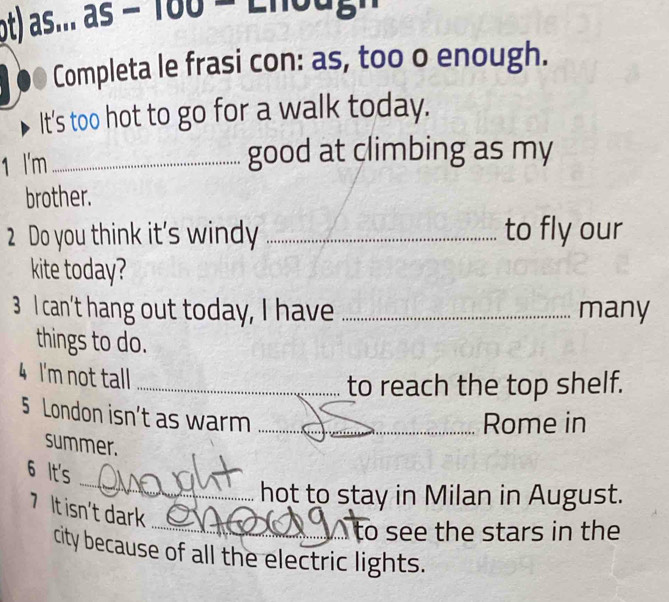 ot) as... as – Too – Enough
Completa le frasi con: as, too o enough.
▸ It's too hot to go for a walk today.
1 I'm ______ good at climbing as my
brother.
2 Do you think it's windy ______ to fly our
kite today?
3 I can't hang out today, I have ______ many
things to do.
4 I'm not tall ______ to reach the top shelf.
5 London isn't as warm as Rome in
summer.
6 It's enought hot to stay in Milan in August.
7 It isn't dark to see the stars in the
city because of all the electric lights.